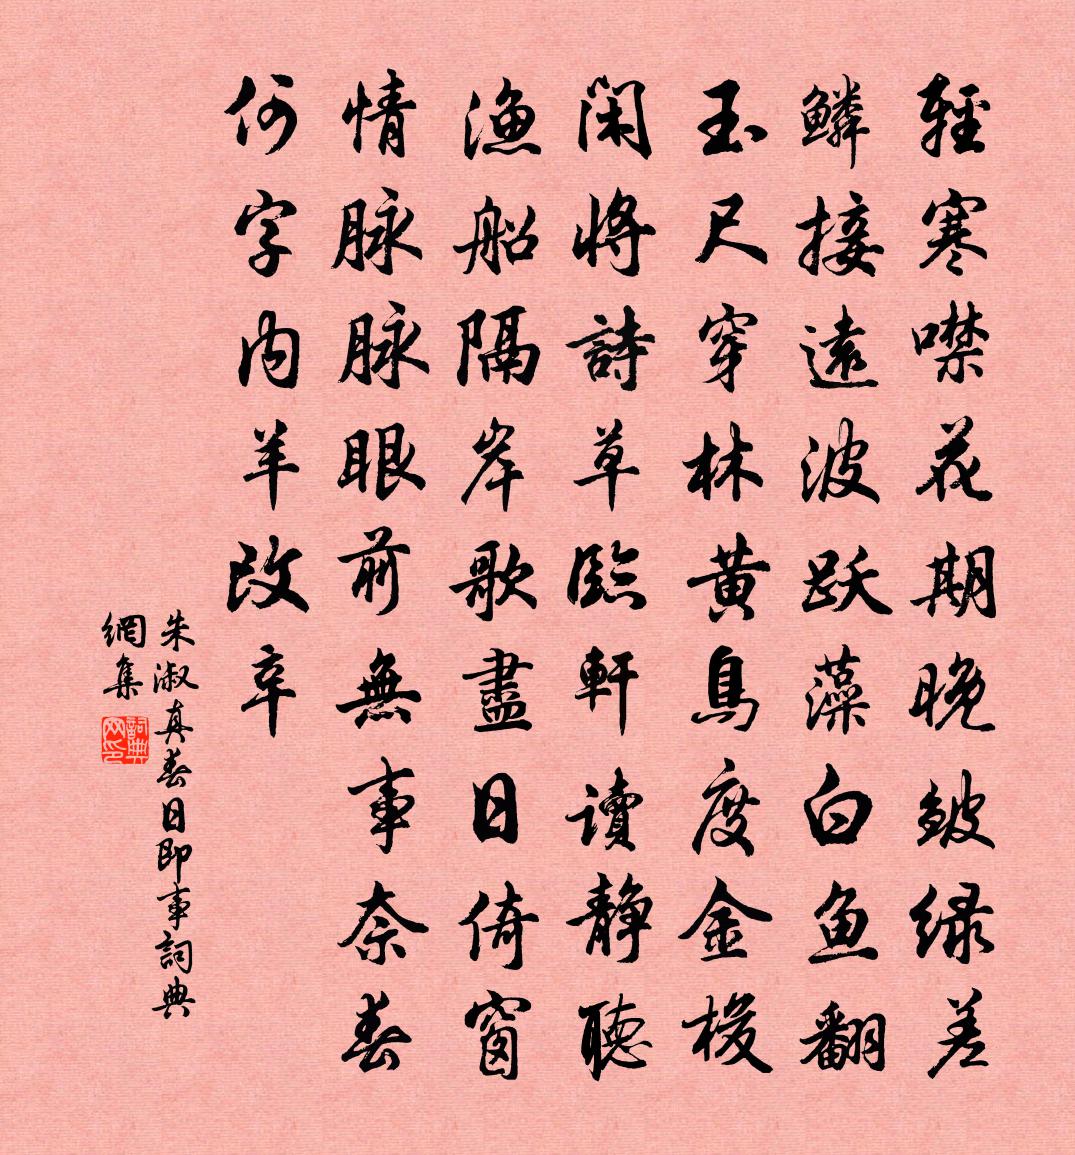 輕寒噤花期晚皴綠差
鱗接遠波跃藻白魚翻
玉尺穿林黄鳥度金梭
閑將詩草臨軒讀靜聽
漁船隔岸歌盡日倚窗
情脉脉眼前無事奈春
何字内羊改辛
朱淑真春日即事詞典
網集
詞典
网印